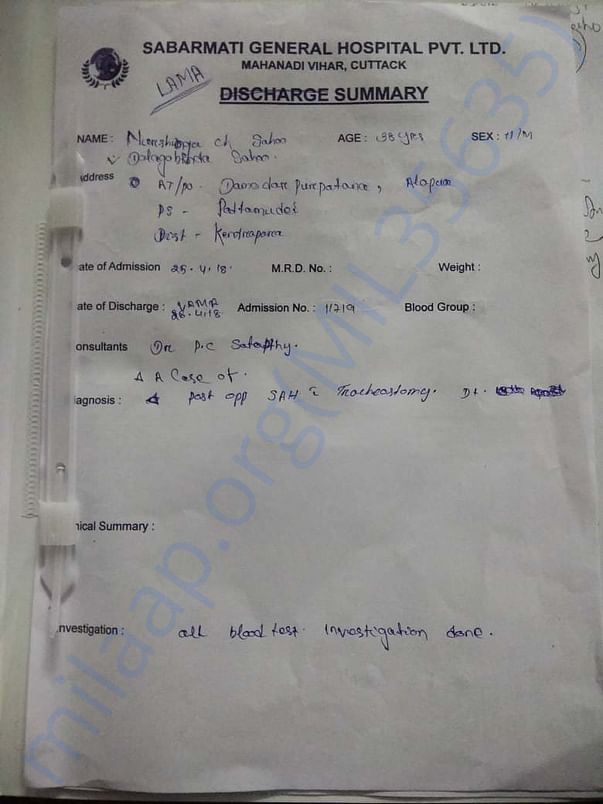 SABARMATI GENERAL HOSPITAL PVT. LTD.
MAHANADI VIHAR, CUTTACK
LAMA
DISCHARGE SUMMARY
NAME : ch Sahoo AGE : 38 yrs SEX : M
Sahoo.
address AT/po. Damodar purpatana,
PS - Pattamudei
Dist - Kendrapara
ate of Admission 25.4.18. M.R.D. No. : Weight :
ate of Discharge : LAMA 28.4.18 Admission No. : 11719 Blood Group :
onsultants Dr. P.C Satapthy.
A Case of.
iagnosis : post opp SAH c Tracheastomy. Dt.
nical Summary :
nvestigation : all blood test investigation done.
milaap.org(MIL35635)